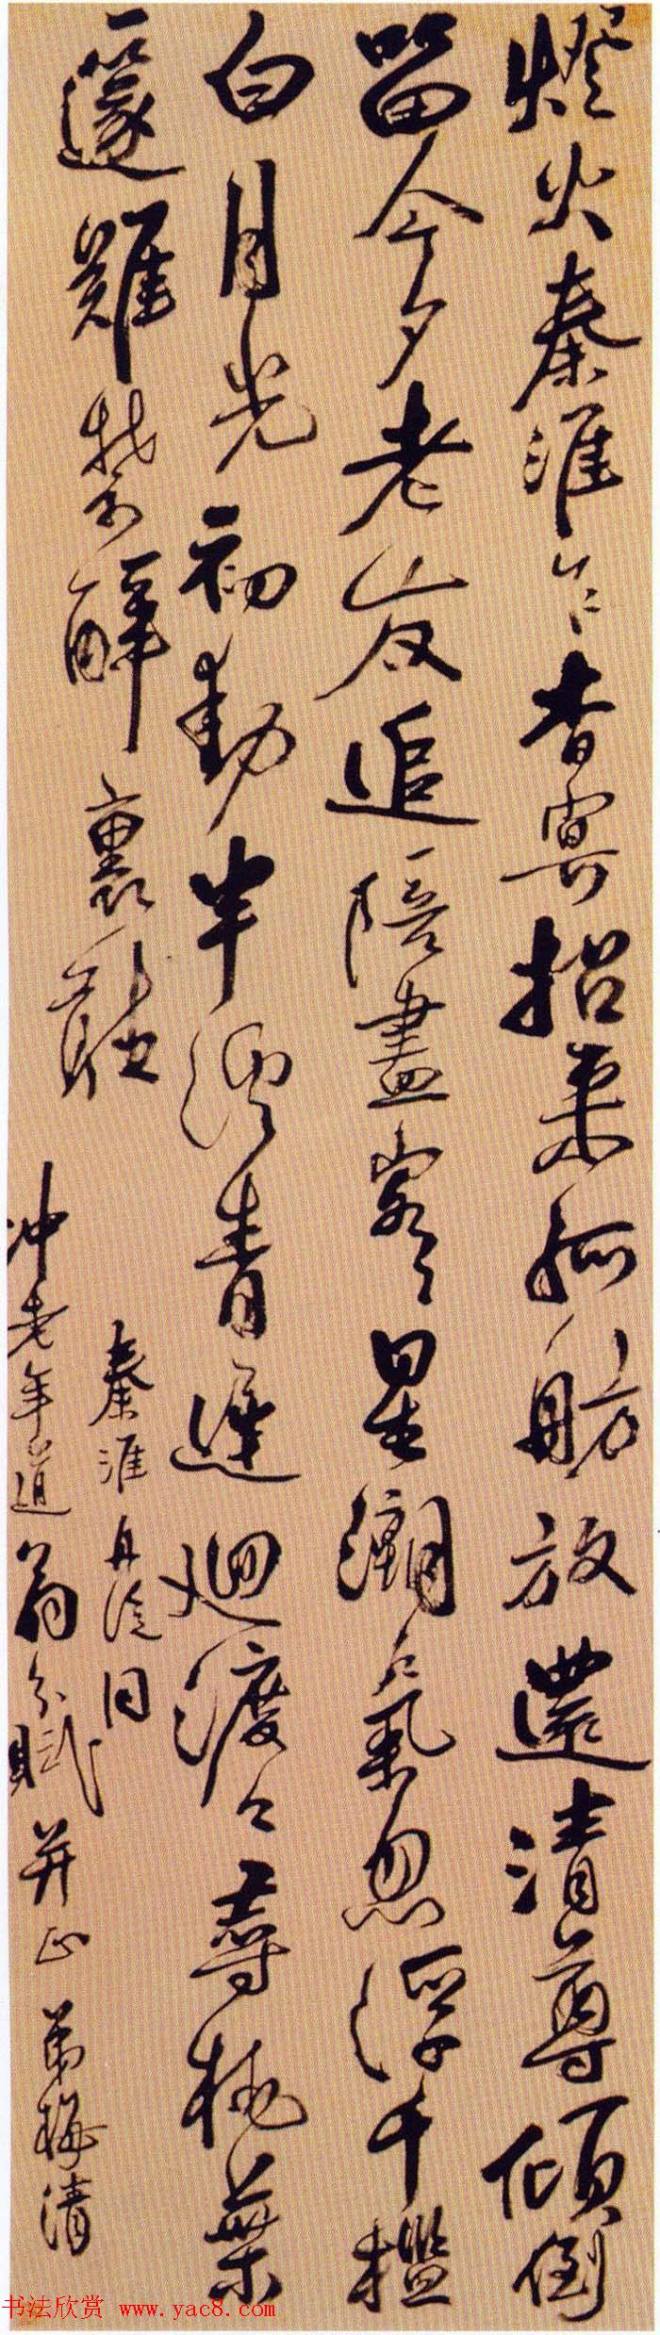 燈火秦淮乍杳冥招來孤舫放還清尊傾倒
留今夕老友追陪盡客星潮氣忽浮千檻
白月光初動半溪青遲迴渡口尋桃葉
一篴難禁醉裏聽
秦淮舟泛同
冲老年道翁分賦并正 弟梅清
书法欣赏 www.yac8.com